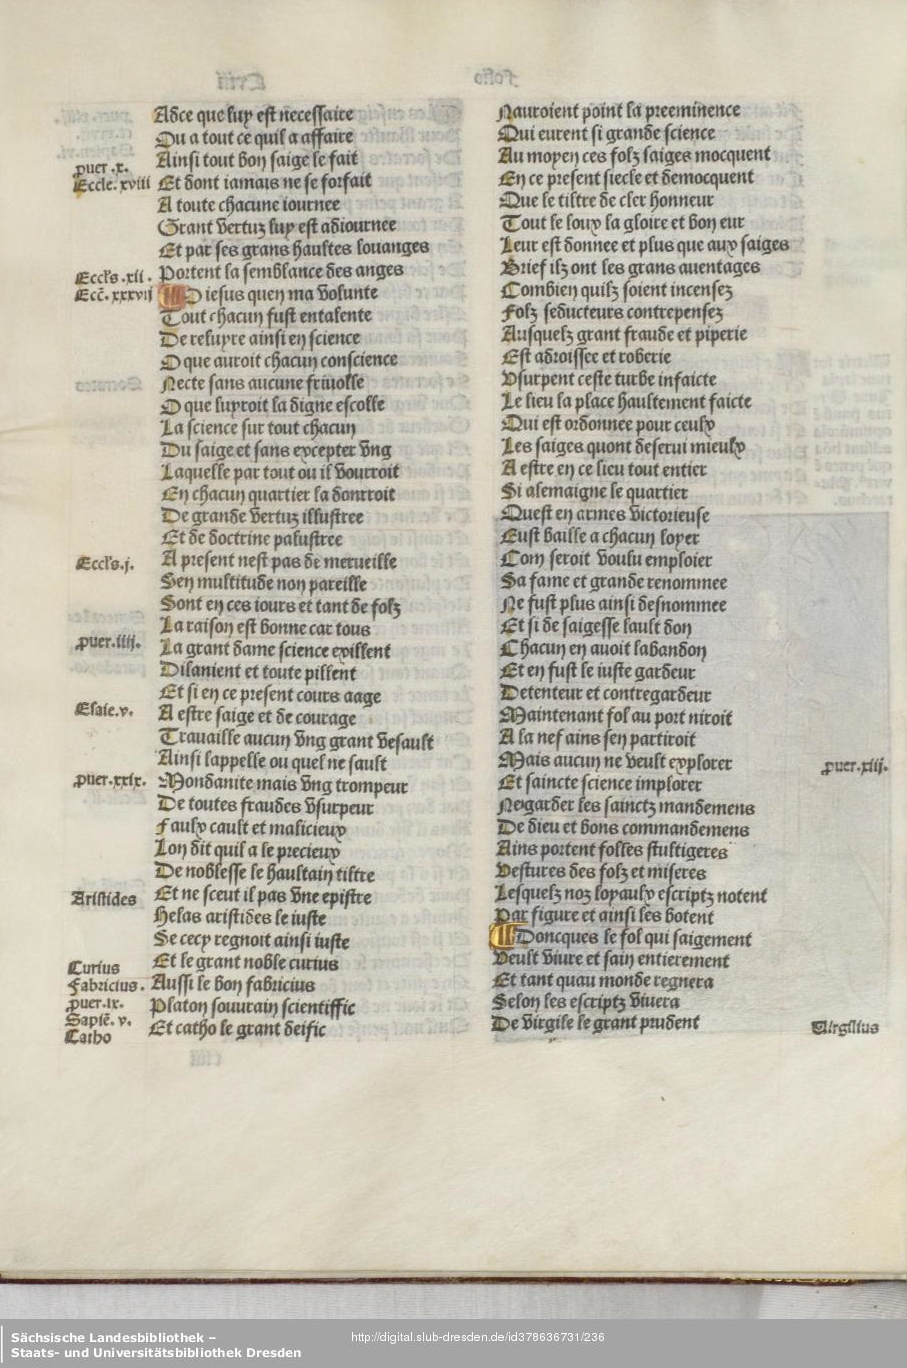 Adce que luy est necessaire
Ou a tout ce quil a affaire
Ainsi tout bon saige le fait
Et dont iamais ne se forfait
A toute chacune iournee
Grant vertuz luy est adiournee
Et par ses grans haultes louanges
Portent la semblance des anges
O iesus quen ma volunte
Tout chacun fust entalente
De reluyre ainsi en science
O que auroit chacun conscience
Necte sans aucune friuolle
O que luyroit la digne escolle
La science sur tout chacun
Du saige et sans excepter vng
Laquelle par tout ou il vourroit
En chacun quartier la donrroit
De grande vertuz illustree
Et de doctrine palustree
A present nest pas de merueille
Sen multitude non pareille
Sont en ces iours et tant de folz
La raison est bonne car tous
La grant dame science exillent
Dilanient et toute pillent
Et si en ce present cours aage
A estre saige et de courage
Trauaille aucun vng grant default
Ainsi lappelle ou quel ne fault
Mondanite mais vng trompeur
De toutes fraudes vsurpeur
Faulx cault et malicieux
Lon dit quil a le precieux
De noblesse le haultain tiltre
Et ne sceut il pas vne epistre
Helas aristides le iuste
Se cecy regnoit ainsi iuste
Et le grant noble curius
Aussi le bon fabricius
Platon souurain scientiffic
Et catho le grant deific
puer .x.
Eccle. xviii
Eccl's .xii.
Ecc̃. xxxvij
Eccl's. j.
puer. iiij.
Esaie. v.
puer. xxix.
Aristides
Curius
Fabricius.
puer. ix.
Sapiẽ. v.
Catho
Nauroient point la preeminence
Qui eurent si grande science
Au moyen ces folz saiges mocquent
En ce present siecle et democquent
Que le tiltre de cler honneur
Tout le loux la gloire et bon eur
Leur est donnee et plus que aux saiges
Brief ilz ont les grans auentages
Combien quilz soient incensez
Folz seducteurs contrepensez
Ausquelz grant fraude et piperie
Est adroissee et roberie
Vsurpent ceste turbe infaicte
Le lieu la place haultement faicte
Qui est ordonnee pour ceulx
Les saiges quont deserui mieulx
A estre en ce lieu tout entier
Si alemaigne le quartier
Quest en armes victorieuse
Eust baille a chacun loyer
Com seroit voulu emploier
Sa fame et grande renommee
Ne fust plus ainsi desnommee
Et si de saigesse lault don
Chacun en auoit labandon
Et en fust le iuste gardeur
Detenteur et contregardeur
Maintenant fol au port niroit
A la nef ains sen partiroit
Mais aucun ne veult explorer
Et saincte science implorer
Ne garder les sainctz mandemens
De dieu et bons commandemens
Ains portent folles stultigeres
Vestures des folz et miseres
Lesquelz noz loyaulx escriptz notent
Par figure et ainsi les botent
Doncques le fol qui saigement
Veult viure et sain entierement
Et tant quau monde regnera
Selon les escriptz viuera
De virgile le grant prudent
puer. xiij.
Virgilius
Sächsische Landesbibliothek –
Staats- und Universitätsbibliothek Dresden
http://digital.slub-dresden.de/id378636731/236